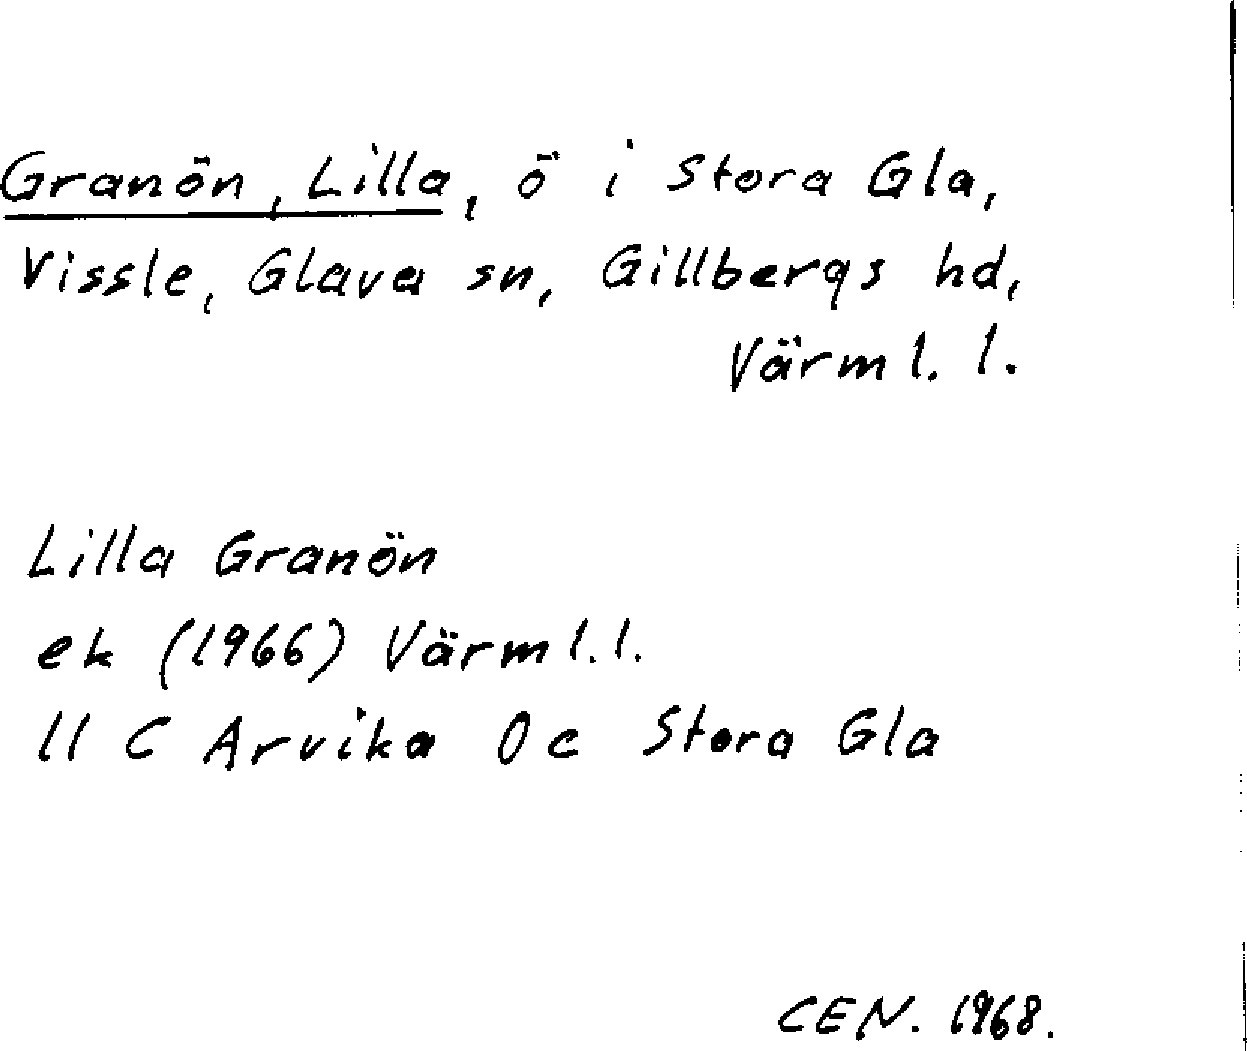 Granön, Lilla, ö i Stora Gla,
Vissle, Glava sn, Gillbergs hd,
Värml. l.
Lilla Granön
ek (1966) Värml.l.
11 C Arvika 0c Stora Gla
CEN. 1968.